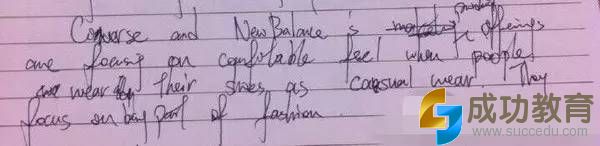 Converse and New Balance's offerings
are focusing on comfortable feel when people
wear their shoes as casual wear They
focus on being part of fashion.
成功教育
www.succedu.com